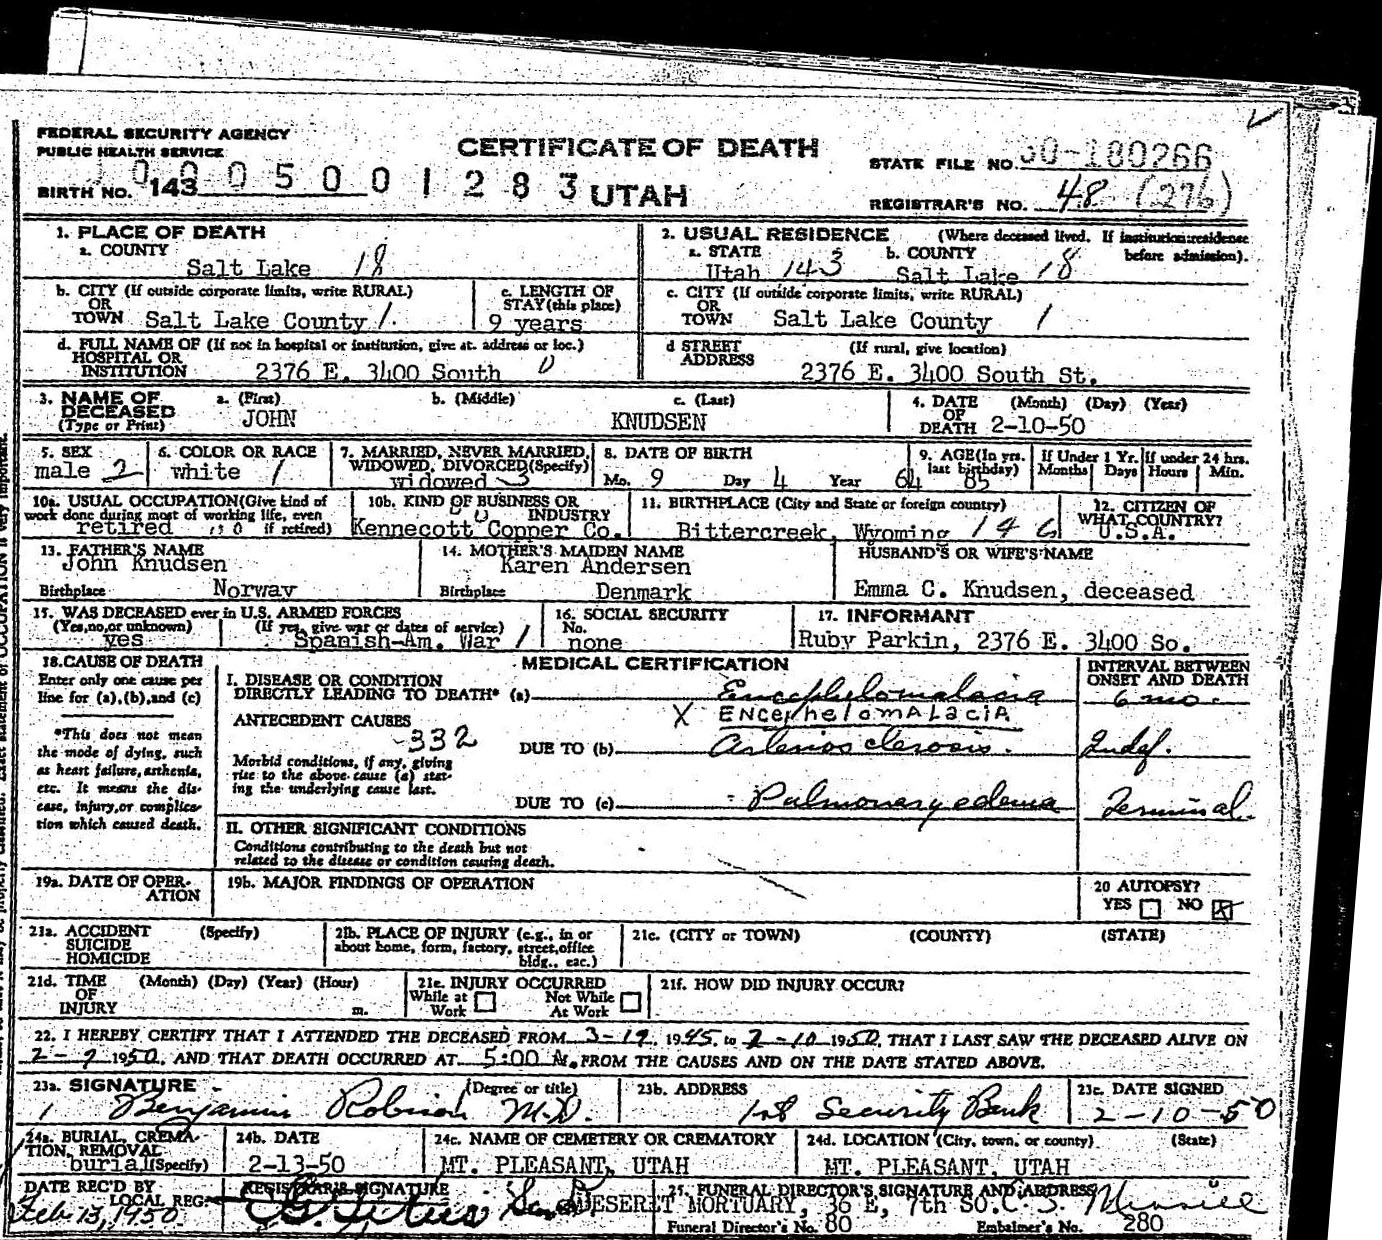 FEDERAL SECURITY AGENCY
PUBLIC HEALTH SERVICE
CERTIFICATE OF DEATH
STATE FILE NO. 50-180266
BIRTH NO. 143 0 0 5 0 0 1 2 8 3 UTAH
REGISTRAR'S NO. 48 (276)
1. PLACE OF DEATH
a. COUNTY
Salt Lake 18
2. USUAL RESIDENCE (Where deceased lived. If institution: residence before admission).
a. STATE b. COUNTY
Utah 143 Salt Lake 18
b. CITY (If outside corporate limits, write RURAL)
OR
TOWN Salt Lake County 1.
c. LENGTH OF
STAY (this place)
9 years
c. CITY (If outside corporate limits, write RURAL)
OR
TOWN Salt Lake County 1
d. FULL NAME OF (If not in hospital or institution, give st. address or loc.)
HOSPITAL OR
INSTITUTION 2376 E. 3400 South 0
d STREET (If rural, give location)
ADDRESS
2376 E. 3400 South St.
3. NAME OF DECEASED (Type or Print)
a. (First) b. (Middle) c. (Last)
JOHN KNUDSEN
4. DATE (Month) (Day) (Year)
OF
DEATH 2-10-50
5. SEX
male 2
6. COLOR OR RACE
white 1
7. MARRIED, NEVER MARRIED,
WIDOWED, DIVORCED (Specify)
widowed 3
8. DATE OF BIRTH
Mo. 9 Day 4 Year 64
9. AGE (In yrs. last birthday)
85
If Under 1 Yr.
Months Days
If under 24 hrs.
Hours Min.
10a. USUAL OCCUPATION (Give kind of
work done during most of working life, even
retired if retired)
10b. KIND OF BUSINESS OR
INDUSTRY
Kennecott Copper Co.
11. BIRTHPLACE (City and State or foreign country)
Bittercreek, Wyoming 146
12. CITIZEN OF
WHAT COUNTRY?
U.S.A.
13. FATHER'S NAME
John Knudsen
Birthplace Norway
14. MOTHER'S MAIDEN NAME
Karen Andersen
Birthplace Denmark
HUSBAND'S OR WIFE'S NAME
Emma C. Knudsen, deceased
15. WAS DECEASED ever in U.S. ARMED FORCES
(Yes, no, or unknown) (If yes, give war or dates of service)
yes Spanish-Am. War 1
16. SOCIAL SECURITY
No.
none
17. INFORMANT
Ruby Parkin, 2376 E. 3400 So.
18. CAUSE OF DEATH
Enter only one cause per
line for (a), (b), and (c)
*This does not mean
the mode of dying, such
as heart failure, asthenia,
etc. It means the dis-
ease, injury, or complica-
tion which caused death.
MEDICAL CERTIFICATION
INTERVAL BETWEEN
ONSET AND DEATH
I. DISEASE OR CONDITION
DIRECTLY LEADING TO DEATH* (a) Encephelomalacia 6 mo.
X ENCephelomALaciA
ANTECEDENT CAUSES
332
DUE TO (b) Arteriosclerosis. Indef.
Morbid conditions, if any, giving
rise to the above cause (a) stat-
ing the underlying cause last.
DUE TO (c) - Pulmonary edema Terminal.
II. OTHER SIGNIFICANT CONDITIONS
Conditions contributing to the death but not
related to the disease or condition causing death.
19a. DATE OF OPER-
ATION
19b. MAJOR FINDINGS OF OPERATION
20 AUTOPSY?
YES NO X
21a. ACCIDENT (Specify)
SUICIDE
HOMICIDE
21b. PLACE OF INJURY (e.g., in or
about home, form, factory, street, office
bldg., eac.)
21c. (CITY or TOWN) (COUNTY) (STATE)
21d. TIME (Month) (Day) (Year) (Hour)
OF
INJURY m.
21e. INJURY OCCURRED
While at Not While
Work At Work
21f. HOW DID INJURY OCCUR?
22. I HEREBY CERTIFY THAT I ATTENDED THE DECEASED FROM 3-19, 1945, to 2-10 1950, THAT I LAST SAW THE DECEASED ALIVE ON
2-7 1950, AND THAT DEATH OCCURRED AT 5:00 A.M., FROM THE CAUSES AND ON THE DATE STATED ABOVE.
23a. SIGNATURE (Degree or title)
1 Benjamin Robison M.D.
23b. ADDRESS
1st Security Bank
23c. DATE SIGNED
2-10-50
24a. BURIAL, CREMA-
TION, REMOVAL
burial (Specify)
24b. DATE
2-13-50
24c. NAME OF CEMETERY OR CREMATORY
MT. PLEASANT, UTAH
24d. LOCATION (City, town, or county) (State)
MT. PLEASANT, UTAH
DATE REC'D BY
LOCAL REG.
Feb 13, 1950.
REGISTRAR'S SIGNATURE
25. FUNERAL DIRECTOR'S SIGNATURE AND ADDRESS
DESERET MORTUARY, 36 E, 7th SO.
Funeral Director's No. 80 Embalmer's No. 280